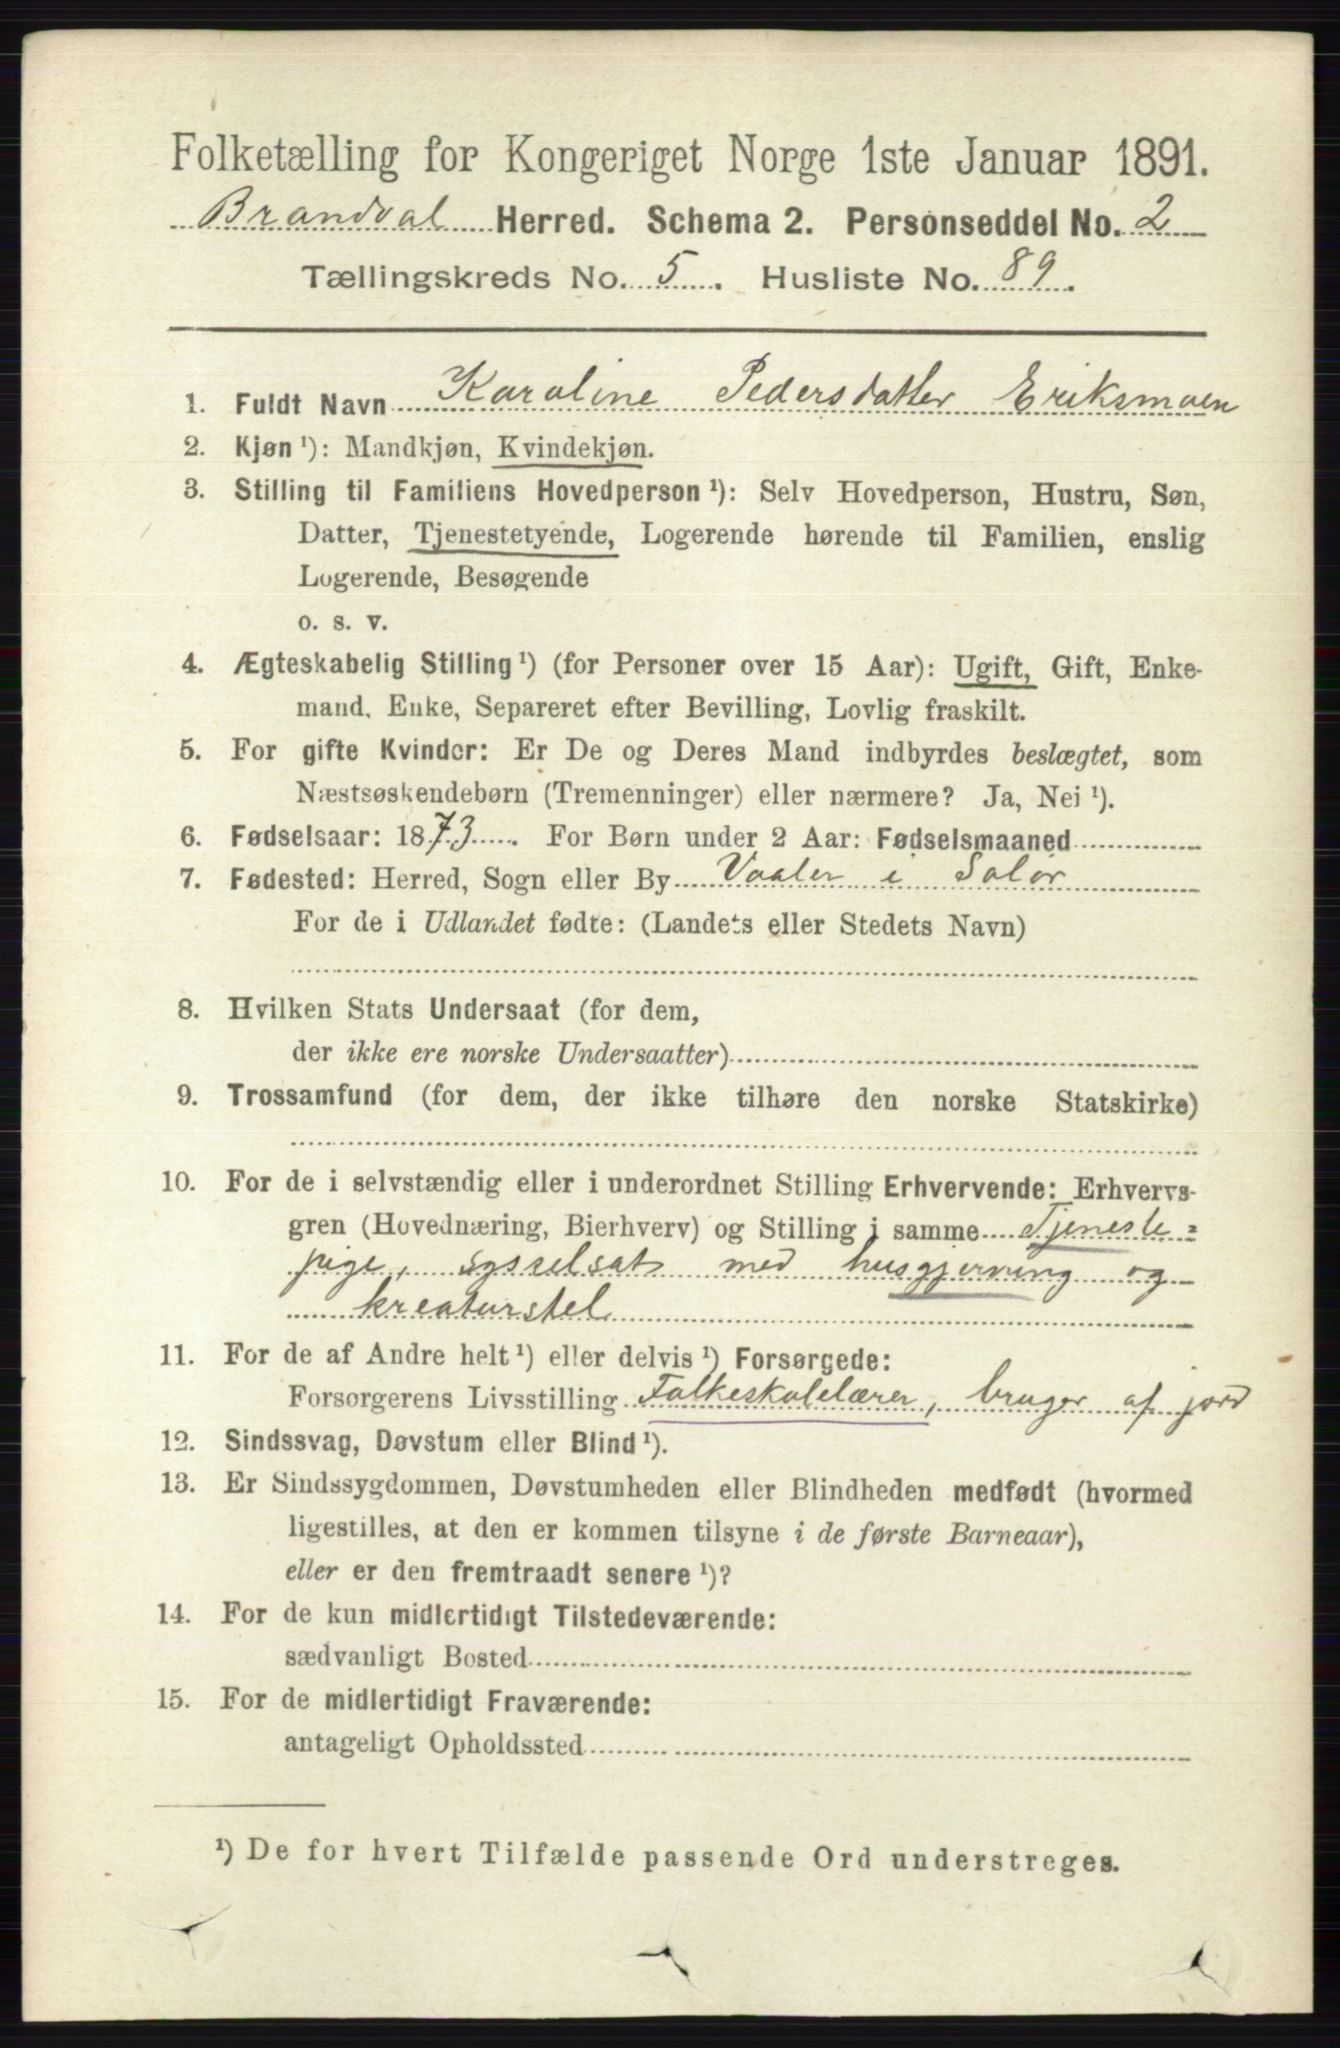 Folketælling for Kongeriget Norge 1ste Januar 1891.
Brandval Herred. Schema 2. Personseddel No. 2
Tællingskreds No. 5. Husliste No. 89.
1. Fuldt Navn Karoline Pedersdatter Eriksmoen
2. Kjøn ¹): Mandkjøn, Kvindekjøn.
3. Stilling til Familiens Hovedperson ¹): Selv Hovedperson, Hustru, Søn,
Datter, Tjenestetyende, Logerende hørende til Familien, enslig
Logerende, Besøgende
o. s. v.
4. Ægteskabelig Stilling ¹) (for Personer over 15 Aar): Ugift, Gift, Enke-
mand, Enke, Separeret efter Bevilling, Lovlig fraskilt.
5. For gifte Kvinder: Er De og Deres Mand indbyrdes beslægtet, som
Næstsøskendebørn (Tremenninger) eller nærmere? Ja, Nei ¹).
6. Fødselsaar: 1873. For Børn under 2 Aar: Fødselsmaaned
7. Fødested: Herred, Sogn eller By Vaaler i Solør
For de i Udlandet fødte: (Landets eller Stedets Navn)
8. Hvilken Stats Undersaat (for dem,
der ikke ere norske Undersaatter)
9. Trossamfund (for dem, der ikke tilhøre den norske Statskirke)
10. For de i selvstændig eller i underordnet Stilling Erhvervende: Erhvervs-
gren (Hovednæring, Bierhverv) og Stilling i samme Tjeneste=
pige, sysselsat med husgjerning og
kreaturstel
11. For de af Andre helt ¹) eller delvis ¹) Forsørgede:
Forsørgerens Livsstilling Folkeskolelærer, bruger af jord
12. Sindssvag, Døvstum eller Blind ¹).
13. Er Sindssygdommen, Døvstumheden eller Blindheden medfødt (hvormed
ligestilles, at den er kommen tilsyne i de første Barneaar),
eller er den fremtraadt senere ¹)?
14. For de kun midlertidigt Tilstedeværende:
sædvanligt Bosted
15. For de midlertidigt Fraværende:
antageligt Opholdssted
¹) De for hvert Tilfælde passende Ord understreges.